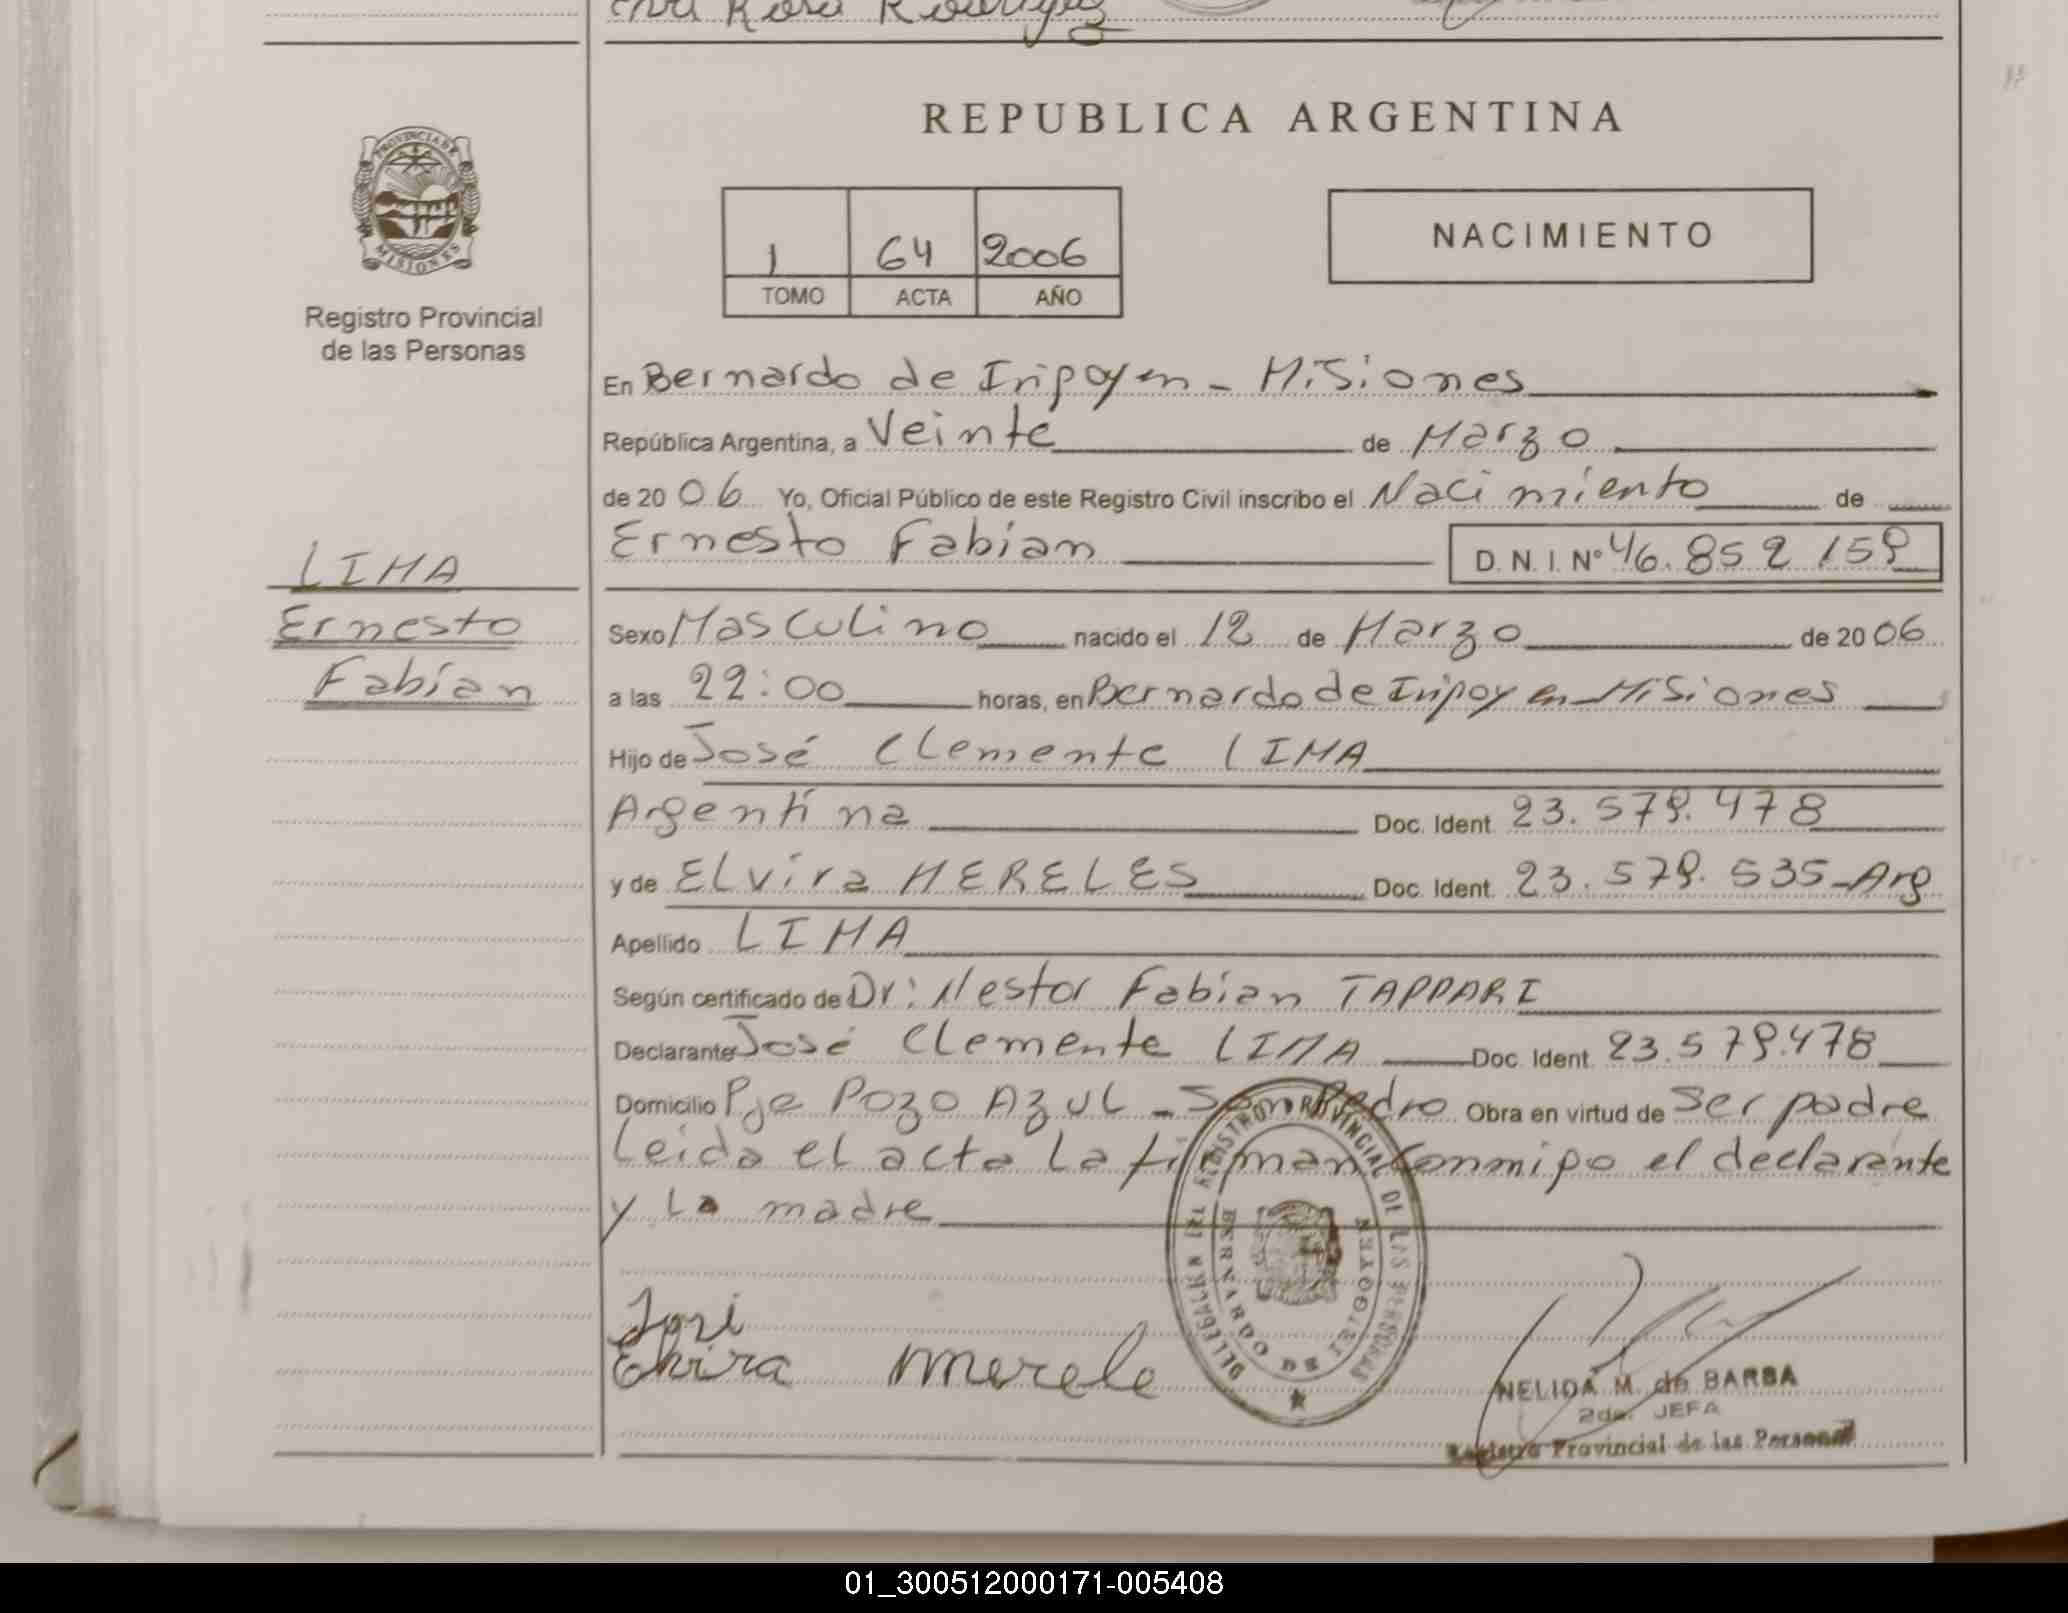 Eva Rosa Rodriguez
REPUBLICA ARGENTINA
PROVINCIA DE
MISIONES
Registro Provincial
de las Personas
1 64 2006
TOMO ACTA AÑO
NACIMIENTO
En Bernardo de Irigoyen - Misiones
República Argentina, a Veinte de Marzo
de 2006 Yo, Oficial Público de este Registro Civil inscribo el Nacimiento de
Ernesto Fabian D. N. I. Nº 46.852 159
LIMA
Ernesto
Fabian
Sexo Masculino nacido el 12 de Marzo de 2006
a las 22:00 horas, en Bernardo de Irigoyen - Misiones
Hijo de José Clemente LIMA
Argentina Doc. Ident. 23.579.478
y de Elvira MERELES Doc. Ident. 23.579.535-Arg
Apellido LIMA
Según certificado de Dr: Nestor Fabian TAPPARI
Declarante José Clemente LIMA Doc. Ident. 23.579.478
Domicilio Pje Pozo Azul - San Pedro Obra en virtud de Ser padre
Leida el acta la firman conmigo el declarante
y la madre
REGISTRO PROVINCIAL DE LAS PERSONAS
DELEGACION
BERNARDO DE IRIGOYEN
Elvira Merele
NELIDA M. de BARBA
2da. JEFA
Registro Provincial de las Personas
01_300512000171-005408